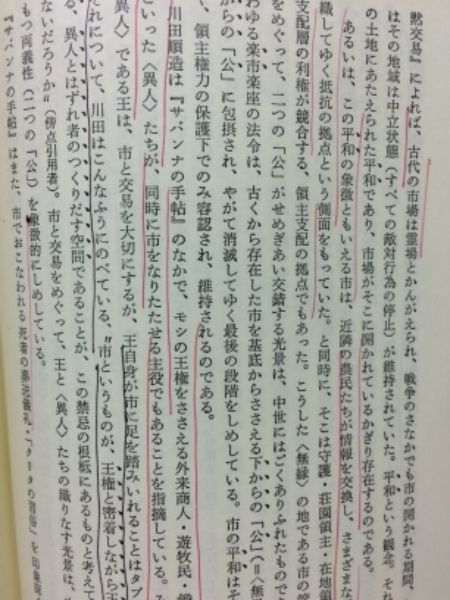 黙交易』によれば、古代の市場は霊場とかんがえられ、戦争のさなかでも市の開かれる期間、
はその地域は中立状態（すべての敵対行為の停止）が維持されていた。平和という観念。それ
の土地にあたえられた平和であり、市場がそこに開かれているかぎり存在するのである。
あるいは、この平和の象徴ともいえる市は、近隣の農民たちが情報を交換し、さまざまな
織してゆく抵抗の拠点という側面をもっていた。と同時に、そこは守護・荘園領主・在地領
支配層の利権が競合する、領主支配の拠点でもあった。こうした〈無縁〉の地である市の
をめぐって、二つの「公」がせめぎあい交錯する光景は、中世にはごくありふれたもので
わゆる楽市楽座の法令は、古くから存在した市を基底からささえる下からの「公」（＝〈無
からの「公」に包摂され、やがて消滅してゆく最後の段階をしめしている。市の平和はそ
、領主権力の保護下でのみ容認され、維持されるのである。
川田順造は『サバンナの手帖』のなかで、モシの王権をささえる外来商人・遊牧民・鍛
といった〈異人〉たちが、同時に市をなりたたせる主役でもあることを指摘している。み
異人〉である王は、市と交易を大切にするが、王自身が市に足を踏みいれることはタブ
それについて、川田はこんなふうにのべている。〝市というものが、王権と密着しながら王
る、異人とはずれ者のつくりだす空間であることが、この禁忌の根柢にあるものと考えて
ないだろうか〟（傍点引用者）。市と交易をめぐって、王と〈異人〉たちの織りなす光景は、
もつ両義性（二つの「公」）を象徴的にしめしている。
『サバンナの手帖』はまた、市でおこなわれる死者の葬送儀礼・「クリタの習俗」を印象